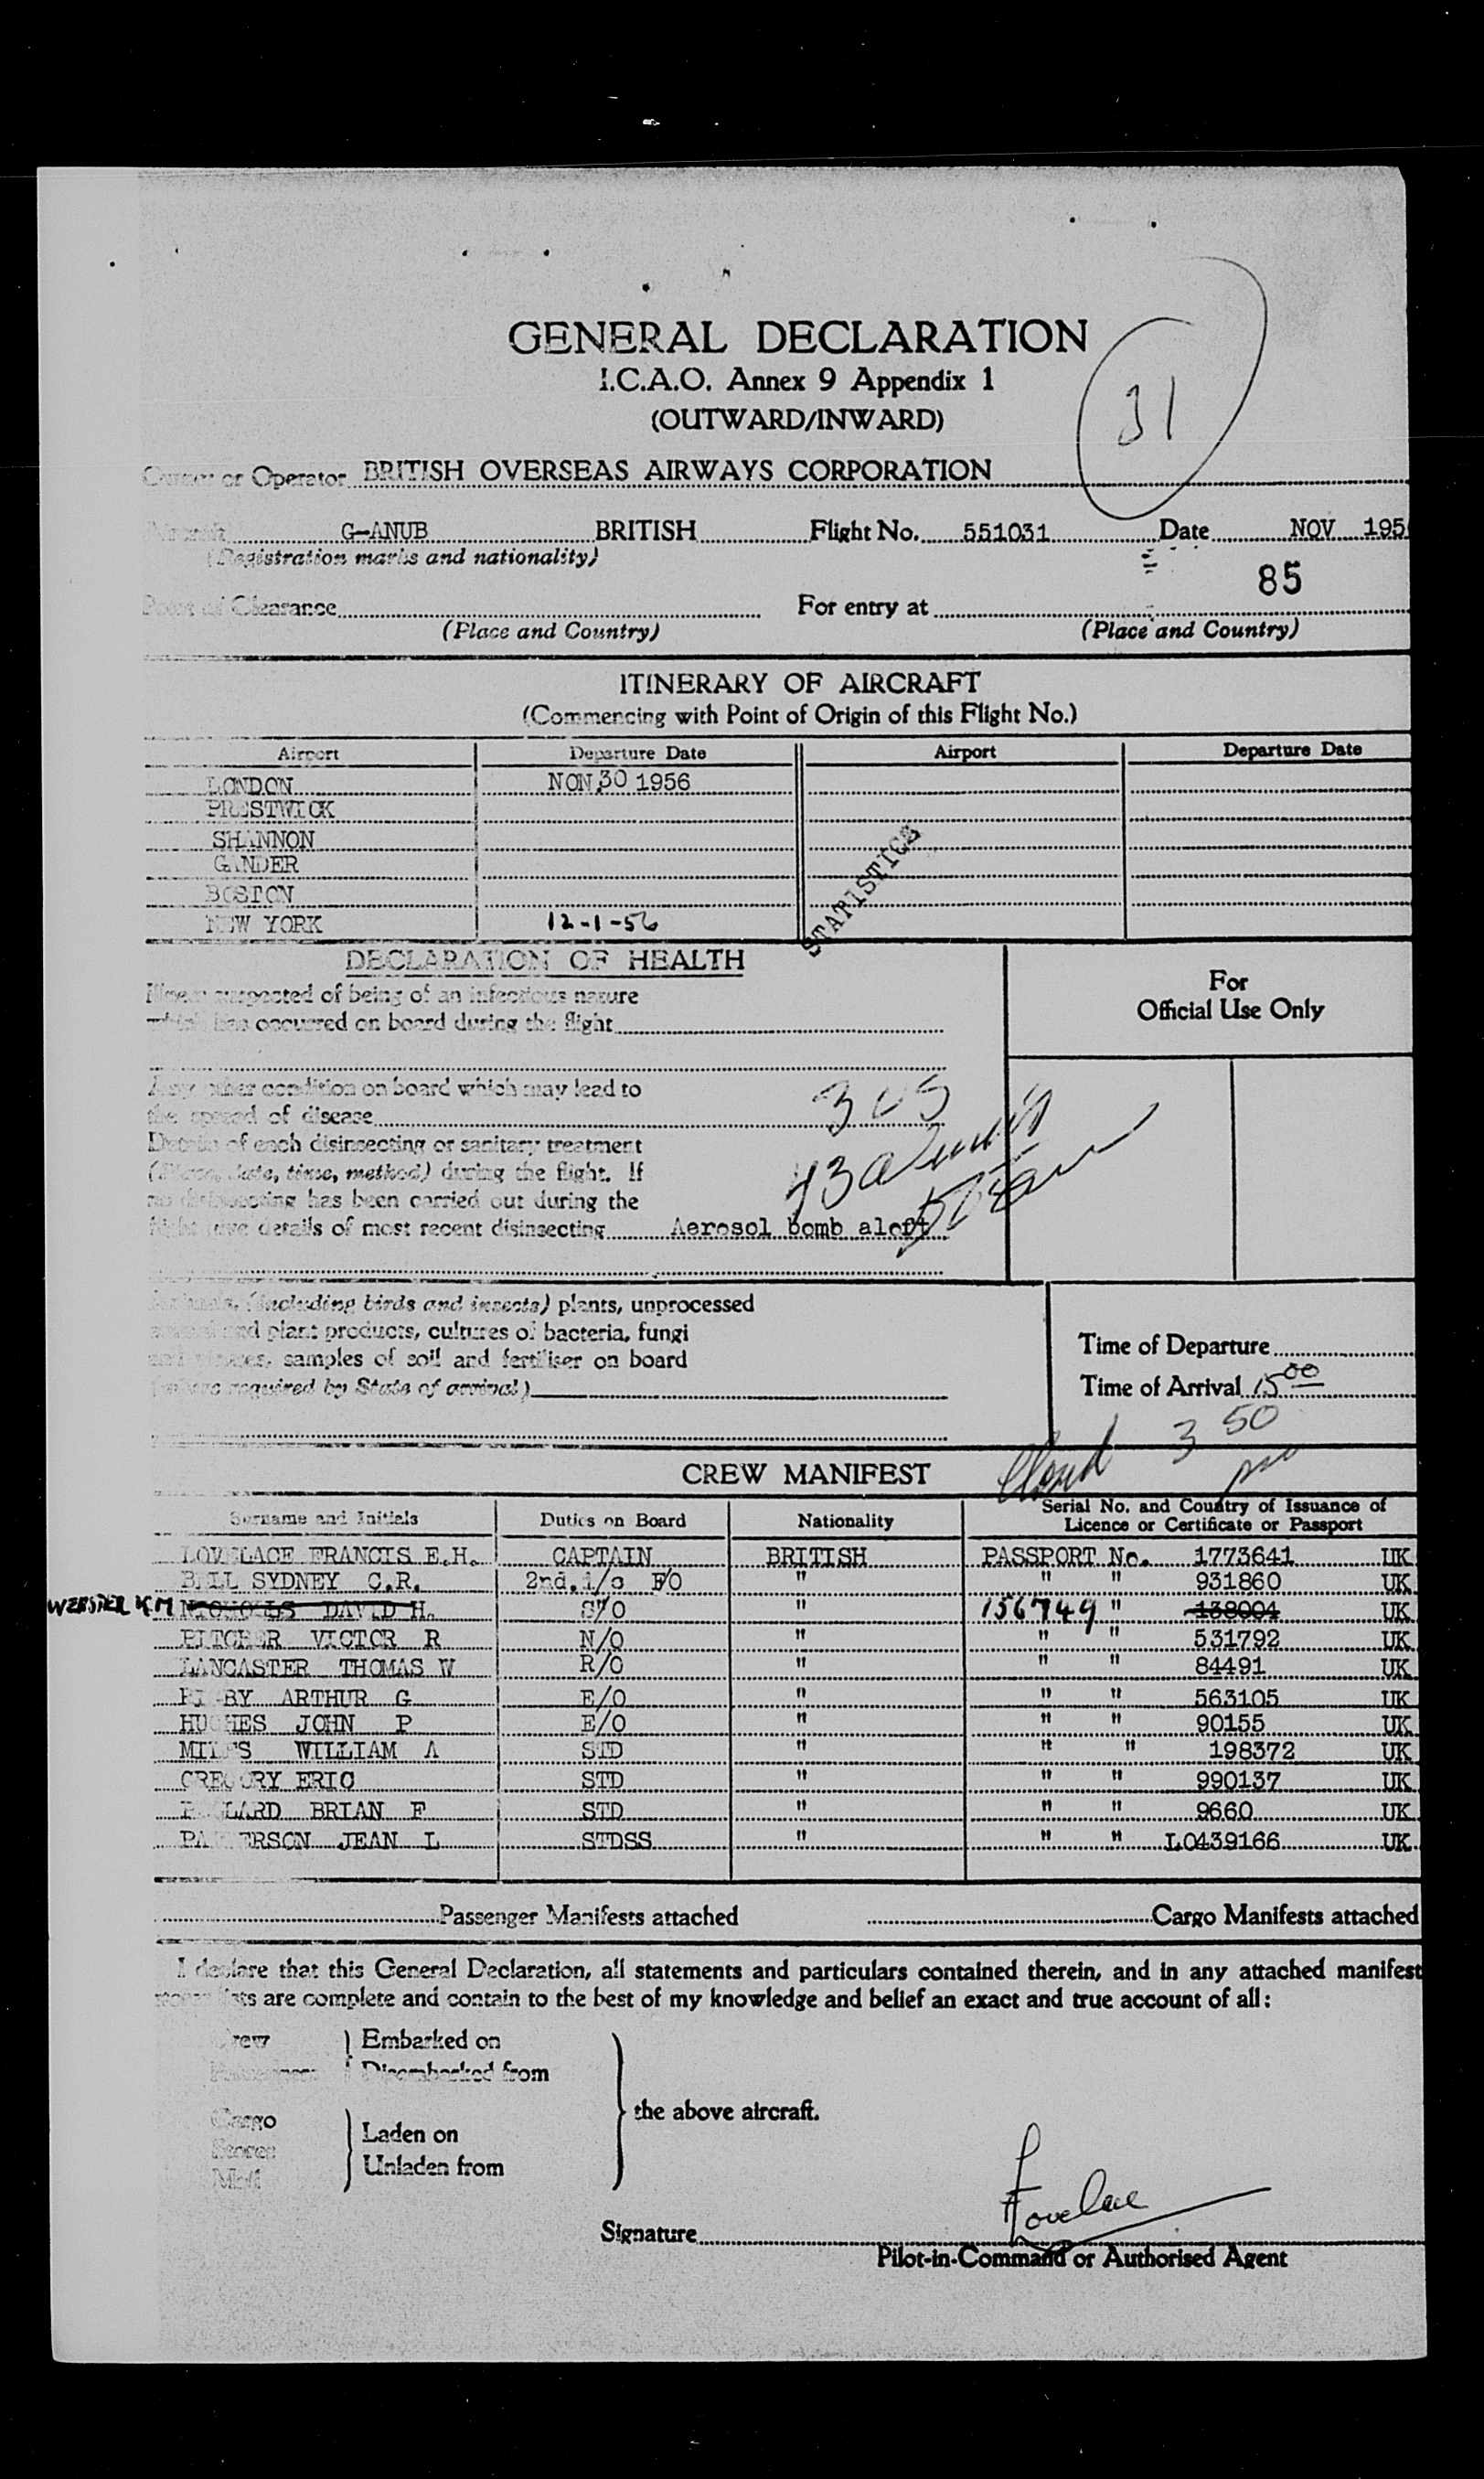 GENERAL DECLARATION
I.C.A.O. Annex 9 Appendix 1
(OUTWARD/INWARD)
31
or Operator BRITISH OVERSEAS AIRWAYS CORPORATION
Aircraft G-ANUB BRITISH Flight No. 551031 Date NOV 195
(Registration marks and nationality)
85
Point of Clearance For entry at
(Place and Country) (Place and Country)
ITINERARY OF AIRCRAFT
(Commencing with Point of Origin of this Flight No.)
Airport Departure Date Airport Departure Date
LONDON NON 30 1956
PRESTWICK
SHANNON
GANDER
BOSTON
NEW YORK 12-1-56
STATISTICS
DECLARATION OF HEALTH
For
Official Use Only
Illness suspected of being of an infectious nature
which has occurred on board during the flight
Any other condition on board which may lead to
the spread of disease
305
Details of each disinsecting or sanitary treatment
(Place, date, time, method) during the flight. If
no disinsecting has been carried out during the
flight give details of most recent disinsecting Aerosol bomb aloft
Animals, (including birds and insects) plants, unprocessed
animal and plant products, cultures of bacteria, fungi
and viruses, samples of soil and fertiliser on board
(where required by State of arrival)
Time of Departure
Time of Arrival 15 00
3 50
pm
CREW MANIFEST
Surname and Initials Duties on Board Nationality Serial No. and Country of Issuance of
Licence or Certificate or Passport
LOVELACE FRANCIS E.H. CAPTAIN BRITISH PASSPORT No. 1773641 UK
BALL SYDNEY C.R. 2nd.i/c F/O " " " 931860 UK
WEBSTER K M NICHOLLS DAVID H. S/O " 156749 " 138004 UK
PITCHER VICTOR R N/O " " " 531792 UK
LANCASTER THOMAS W R/O " " " 84491 UK
ARTHUR G E/O " " " 563105 UK
HUGHES JOHN P E/O " " " 90155 UK
WILLIAM A STD " " " 198372 UK
GREGORY ERIC STD " " " 990137 UK
BRIAN F STD " " " 9660 UK
JEAN L STDSS " " " L0439166 UK
Passenger Manifests attached Cargo Manifests attached
I declare that this General Declaration, all statements and particulars contained therein, and in any attached manifest
lists are complete and contain to the best of my knowledge and belief an exact and true account of all:
Crew Embarked on
Passengers Disembarked from
the above aircraft.
Cargo
Stores
Mail
Laden on
Unladen from
Signature Lovelace
Pilot-in-Command or Authorised Agent